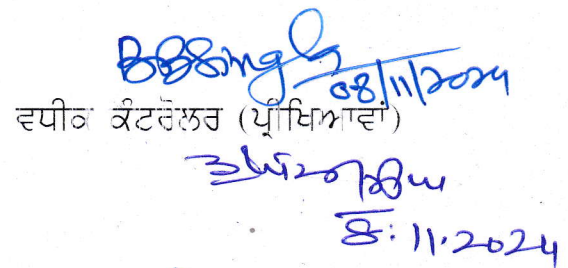 BBSingh
08/11/2024
ਵਧੀਕ ਕੰਟਰੋਲਰ (ਪ੍ਰੀਖਿਆਵਾਂ)
8.11.2024